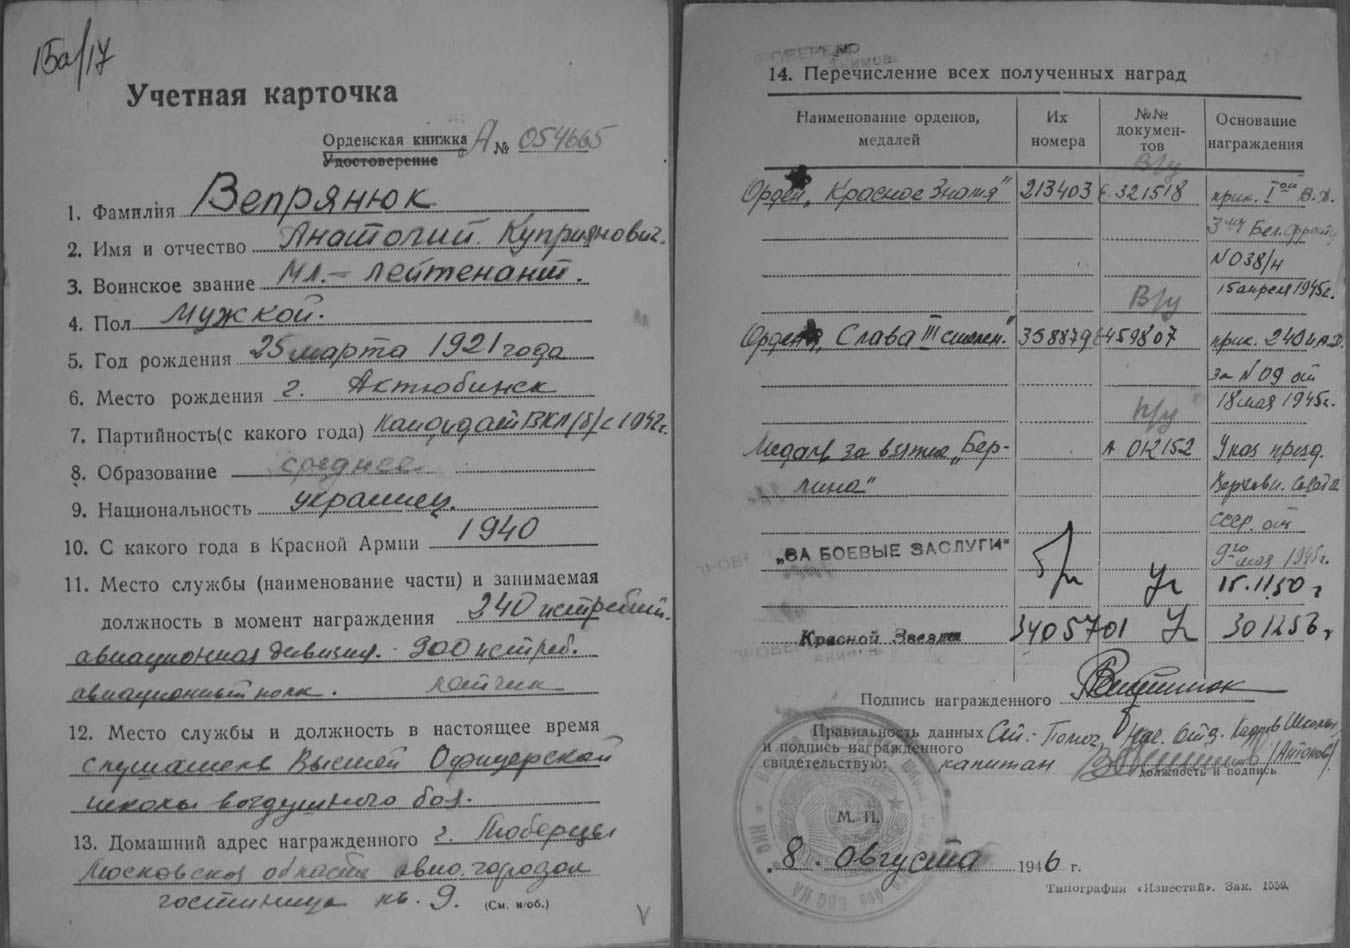 15а/17
Учетная карточка
Орденская книжка А № 054665
Удостоверение
1. Фамилия Вепрянюк
2. Имя и отчество Анатолий Куприянович.
3. Воинское звание Мл.- лейтенант.
4. Пол Мужской.
5. Год рождения 25 марта 1921 года
6. Место рождения г. Актюбинск
7. Партийность(с какого года) Кандидат ВКП/б/ с 1942г.
8. Образование среднее
9. Национальность украинец.
10. С какого года в Красной Армии 1940
11. Место службы (наименование части) и занимаемая
должность в момент награждения 240 истребит.
авиационная дивизия. - 900 истреб.
авиационный полк. летчик
12. Место службы и должность в настоящее время
слушатель Высшей Офицерской
школы воздушного боя.
13. Домашний адрес награжденного г. Люберцы
Московской области авио.городок
гостиница кв. 9. (См. н/об.)
ПРОВЕРЕНО
14. Перечисление всех полученных наград
Наименование орденов, медалей
Их номера
№№ докумен-тов
Основание награждения
В/у
Орден „Красное Знамя" 213403 Е 321518 прик. I ой В.А.
3му Бел.фронту
N 038/н
В/у 15 апреля 1945г.
Орден „Слава III степен." 358879 Е 459807 прик. 240 и.А.Д.
за N 09 от
18 мая 1945г.
Медаль за взятие „Бер- А 012152 Указ през.
лина" Верховн. Совета
СССР. от
9го мая 1945г.
„ЗА БОЕВЫЕ ЗАСЛУГИ" б/н Уг 15.11.50 г
Красной Звезды 3405701 Уг 301256 г
Подпись награжденного
Правильность данных Ст.- Помоч. Нач. Отд. Кадров Школы
и подпись награжденного
свидетельствую: капитан /Антонов/
должность и подпись
М. П.
8. августа 1946 г.
Типография «Известий». Зак. 1550.